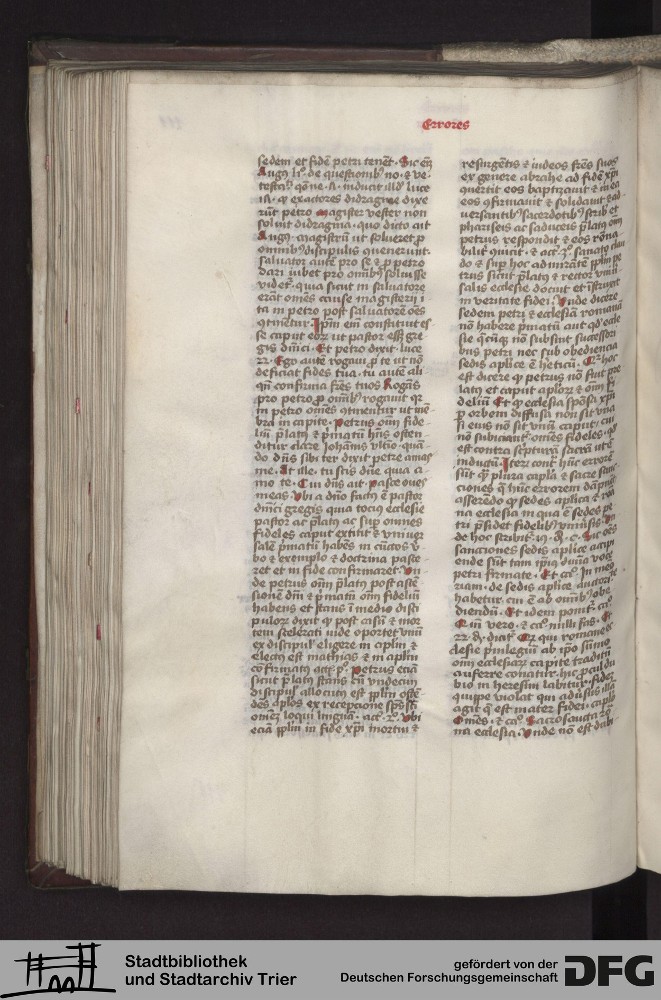 Errores
sedem et fidē petri tenēt. Sic em̄
Augꝰ li. de questionibꝰ no. & ve.
testātꝰ
inducit illd luce
exactores didragme dixe
rūt petro magister vester non
soluit didragma. quo dicto ait
Augꝰ. magistrū ut solueret ꝓ
omnibꝰ discipulis querierunt
saluator autē pro se & ꝓ petro
dari iubet pro omībꝰ soluisse
videt̄. quia sicut in saluatore
erāt omēs cause magisterij i
ta in petro post saluatorē oēs
ꝯtinētur. Ip̄m em̄ constituit es
se caput eoꝝ ut pastor esset gre
gis dn̄ici. Et petro dixit luce
Ego aute rogaui ꝓ te ut nō
deficiat fides tua. tu autē ali
qn̄ confirma frēs tuos Rogās
pro petro ꝓ omībꝰ rogauit
in petro omēs ꝯtinentur ut mē
bra in capite. Petrus om̄ fide
liū p̄latꝰ & p̄matū hn̄s ostēn
ditur clare Iohānis vltio. quā
do dn̄s sibi ter dixit petre amas
me. At ille. tu scis dn̄e quia a
mo te. Cui dn̄s ait. Pasce oues
meas. Vbi a dn̄o factꝰ ē pastor
dn̄ici gregis quia tociꝰ ecclesie
pastor ac p̄latꝰ ac sup omnes
fideles caput extitit & vniuer
salē p̄matū habēs in cūctos v̄
bo & exemplo & doctrina pasce
ret et in fide confirmaret. Vn
de petrus om̄ p̄latꝰ post ascē
sionē dn̄i & p̄matū om̄ fideliū
habens et stans ī medio disci
puloꝝ dixit ꝙ post casū & mor
tem scelerati iude oportet vnū
ex discipulꝭ eligere in ap̄lm &
electꝰ est mathias & in ap̄lm
cōfirmatꝰ actꝭ pº. Petrus eciā
sicut p̄latꝰ stans cū vndecim
discipulꝭ allocutꝰ est pp̄lm ostē
dēs ap̄los ex recepcione sp̄s sc̄i
omēs loqui linguā. act. 2. Vbi
eciā pp̄lm in fide xp̄i mortui &
resurgētis & iudeos frēs suos
ex genere abrahe ad fidē xp̄i
ꝯuertit eos baptizauit & in ea
eos ꝯfirmauit & solidauit & ad
uersantibꝰ sacerdotibꝰ scribꝭ et
phariseis ac saduceis p̄latꝰ om̄
petrus respondit & eos rōna
bilit̄ ꝯuicit. & act. 3. sanato clau
do & sup hoc admirātē pp̄lm pe
trus sicut p̄latꝰ & rector vniu
salis ecclesie docuit et īstruxit
in veritate fidei. Vnde dicere
sedem petri & ecclesiā romanā
nō habere p̄matū aut qd̄ eccle
sie q̄cūqꝫ nō subsint successori
bus petri nec sub obediencia
sedis aplice ē heticū. hoc
est dicere ꝙ petrus nō fuit pre
latꝰ et caput aploꝝ & om̄ fi
deliū Et ꝙ ecclesia spōsa xp̄i
ꝑ orbem diffusa non sit vna
si eius nō sit vnū caput. cui
nō subiciant̄ omēs fideles. qd̄
est contra scripturā sacrā ut ē
inductū. Iterū cont̄ hūc errorē
sūt qꝫ plura capla & sacre sanc
ciones q̄ hūc errorem dāpnāt
asserēdo ꝙ sedes aplica & roa
na ecclesia in qua ē sedes pe
tri p̄sidet fidelibꝰ vniuersis.
de hoc scribit̄
Sic oēs
sanctiones sedis aplice accipi
ende sūt tam ip̄ius diuīa voce
petri firmate. Et In me
riam. de sedis aplice autori
habetur. cui ē ab omībꝰ obe
diendū. Et idem ponit̄
Cum vero. & ca. nulli fas. Et
dicit̄. qui romane
clesie p̄uilegiū ab ip̄o sūmo
om̄ ecclesiarꝫ capite traditū
auferre conatur. hic procul du
bio in heresim labitur. fidē
quippe violat qui aduersus illā
agit q̄ est mater fidei. caplo
Omēs. & ca. Sacrosancta ro
na ecclesia. Vnde nō est dubi
Stadtbibliothek
und Stadtarchiv Trier
gefördert von der
Deutschen Forschungsgemeinschaft
DFG